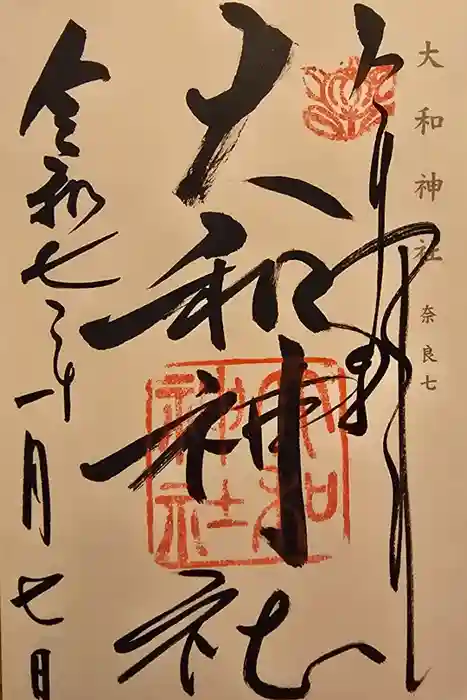 大和神社 奈良七
奉拝
大和神社
大和神社
令和七年一月七日